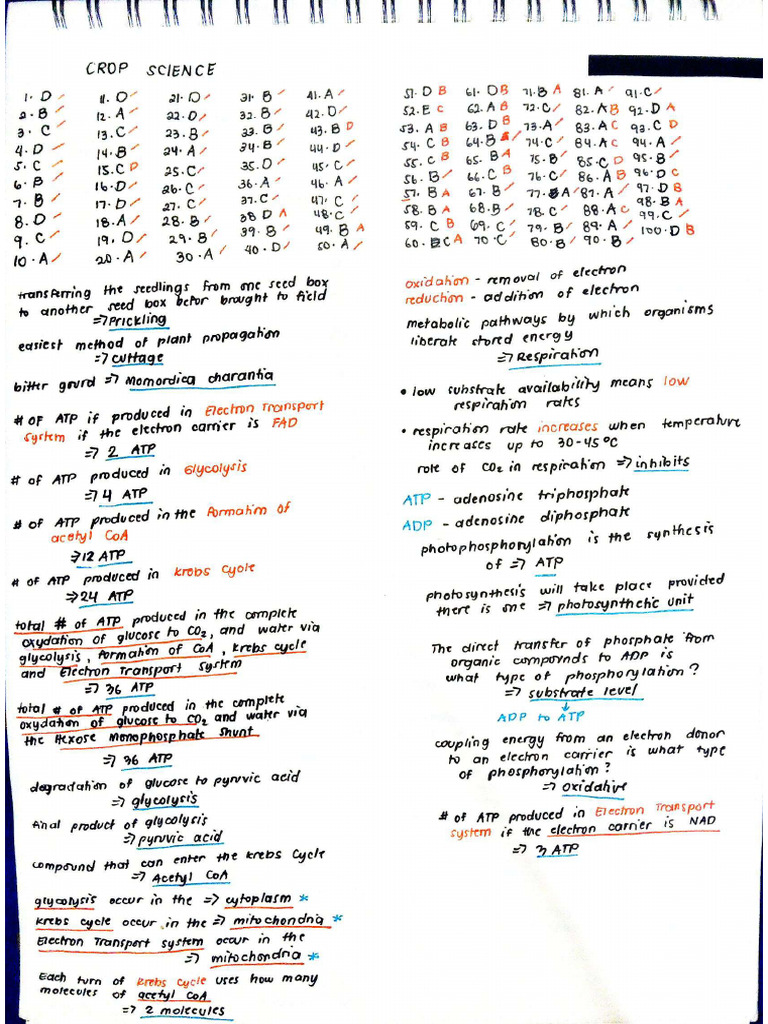 CROP SCIENCE
1. D / 11. D / 21. D / 31. B / 41. A /
2. B / 12. A / 22. D / 32. B / 42. D /
3. C / 13. C / 23. B / 33. B / 43. B D
4. D / 14. B / 24. A / 34. B / 44. D /
5. C / 15. C D 25. C / 35. D / 45. C /
6. B / 16. D / 26. C / 36. A / 46. A /
7. B / 17. D / 27. C / 37. C / 47. C /
8. D / 18. A / 28. B / 38 D A 48. C /
9. C / 19. D / 29. B / 39. B / 49. B A
10. A / 20. A / 30. A / 40. D / 50. A /
transferring the seedlings from one seed box
to another seed box befor brought to field
⇒ Prickling
easiest method of plant propagation
⇒ cuttage
bitter gourd ⇒ Momordica charantia
# OF ATP if produced in Electron Transport
System if the electron carrier is FAD
⇒ 2 ATP
# of ATP produced in Glycolysis
⇒ 4 ATP
# of ATP produced in the Formation of
acetyl CoA
⇒ 12 ATP
# of ATP produced in Krebs Cycle
⇒ 24 ATP
total # of ATP produced in the complete
oxydation of glucose to CO2, and water via
glycolysis, formation of CoA, Krebs cycle
and Electron Transport System
⇒ 36 ATP
total # of ATP produced in the complete
oxydation of glucose to CO2 and water via
the Hexose Monophosphate Shunt
⇒ 36 ATP
degradation of glucose to pyruvic acid
⇒ glycolysis
final product of glycolysis
⇒ pyruvic acid
compound that can enter the Krebs Cycle
⇒ Acetyl CoA
glycolysis occur in the ⇒ cytoplasm *
Krebs cycle occur in the ⇒ mitochondria *
Electron Transport system occur in the
⇒ mitochondria *
Each turn of Krebs Cycle uses how many
molecules of acetyl CoA
⇒ 2 molecules
51. D B 61. D B 71. B A 81. A / 91. C /
52. E C 62. A B 72. C / 82. A B 92. D A
53. A B 63. D B 73. A / 83. A C 93. C D
54. C B 64. B / 74. C / 84. A C 94. A /
55. C B 65. B A 75. B / 85. C D 95. B /
56. B / 66. C B 76. C / 86. A B 96. D C
57. B A 67. B / 77. A / 87. A / 97. D B
58. B A 68. B / 78. C / 88. A C 98. B A
59. C B 69. C / 79. B / 89. A / 99. C /
60. C A 70. C / 80. B / 90. B / 100. D B
oxidation - removal of electron
reduction - addition of electron
metabolic pathways by which organisms
liberate stored energy
⇒ Respiration
• low substrate availability means low
respiration rates
• respiration rate increases when temperature
increases up to 30-45°C
role of CO2 in respiration ⇒ inhibits
ATP - adenosine triphosphate
ADP - adenosine diphosphate
photophosphorylation is the synthesis
of ⇒ ATP
photosynthesis will take place provided
there is one ⇒ photosynthetic unit
The direct transfer of phosphate from
organic compornds to ADP is
what type of phosphorylation?
⇒ substrate level
↓
ADP to ATP
coupling energy from an electron donor
to an electron carrier is what type
of phosphorylation?
⇒ oxidative
# of ATP produced in Electron Transport
System if the electron carrier is NAD
⇒ 3 ATP